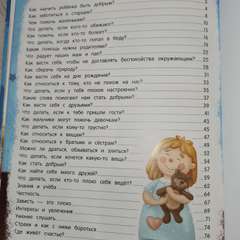 Как научить ребёнка быть добрым?
Как заботиться о старших?
Чем помочь животным?
Что делать, если кого-то обижают?
Как помочь, если кто-то болеет?
Что делать, когда кто-то попал в беду?
Какая помощь нужна родителям?
Что радует наших мам и пап?
Как вести себя, чтобы не доставлять беспокойства окружающим?
Как сберечь природу?
Как вести себя на дне рождения?
Как относиться к тем, кто не похож на нас?
Что делать, если у кого-то плохое настроение?
Какие слова помогают нам стать добрыми?
Как вести себя с друзьями?
Что делать, если к тебе пришли гости?
Как мальчики могут помочь девочкам?
Что делать, если кому-то грустно?
Как относиться к вещам?
Как относиться к братьям и сёстрам?
Можно ли драться, обзываться и злиться?
Что делать, если хочется какую-то вещь?
Как стать добрым?
Как найти себе много друзей?
Что делать, если кто-то плохо себя ведёт?
Знания и учёба
Честность
Зависть — это плохо
Интересы и увлечения
Умение слушать
Страхи и как с ними бороться
Где живёт счастье?